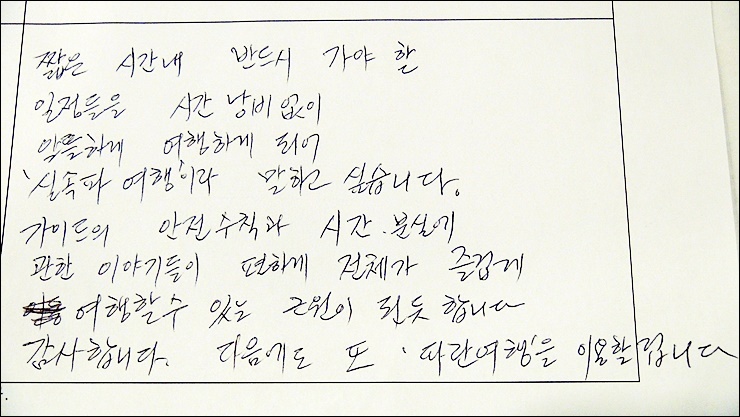 짧은 시간내 반드시 가야 할
일정들을 시간 낭비 없이
알뜰하게 여행하게 되어
'실속파 여행'이라 말하고 싶습니다.
가이드의 안전수칙과 시간·분실에
관한 이야기들이 편하게 전체가 즐겁게
여행할수 있는 근원이 된듯 합니다
감사합니다. 다음에도 또 '따란여행'을 이용할겁니다